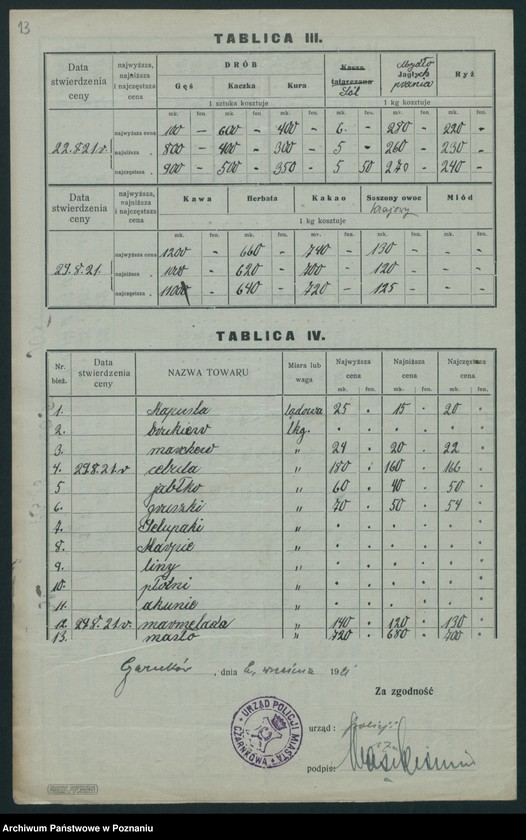 13
TABLICA III.
Data stwierdzenia ceny | najwyższa, najniższa i najczęstsza cena | DRÓB | Kasza tatarczana Sól | Mydło Jagły | Ryż
Gęś | Kaczka | Kura
1 sztuka kosztuje | 1 kg kosztuje
mk. | fen. | mk. | fen. | mk. | fen. | mk. | fen. | mk. | fen. | mk. | fen.
22.8.21 r. | najwyższa cena | 100 | - | 600 | - | 400 | - | 6 | - | 280 | - | 220 | -
najniższa „ | 800 | - | 400 | - | 300 | - | 5 | - | 260 | - | 230 | -
najczęstsza „ | 900 | - | 500 | - | 350 | - | 5 | 50 | 270 | - | 240 | -
Data stwierdzenia ceny | najwyższa, najniższa i najczęstsza cena | Kawa | Herbata | Kakao | Suszony owoc krajowy | Miód
1 kg kosztuje
mk. | fen. | mk. | fen. | mk. | fen. | mk. | fen. | mk. | fen.
29.8.21. | najwyższa cena | 1200 | - | 660 | - | 740 | - | 130 | - | - | -
najniższa „ | 1000 | - | 620 | - | 700 | - | 120 | - | - | -
najczęstsza „ | 11000 | - | 640 | - | 720 | - | 125 | - | - | -
TABLICA IV.
Nr. bież. | Data stwierdzenia ceny | NAZWA TOWARU | Miara lub waga | Najwyższa cena | Najniższa cena | Najczęstsza cena
mk. | fen. | mk. | fen. | mk. | fen.
1. | Kapusta | lądowa | 25 | 15 | 20
2. | 1 kg.
3. | marchew | „ | 24 | 20 | 22
4. | 29.8.21. r | cebula | „ | 180 | 160 | 166
5 | jabłko | „ | 60 | 40 | 50
6. | gruszki | „ | 70 | 50 | 54
7. | „
8. | Karpie | „
9. | liny | „
10. | „
11. | okunie | „
12. | 29.8.21. r. | marmelada | „ | 140 | 120 | 130
13. | masło | „ | 720 | 680 | 700
Czarnków, dnia 2. września 1921
Za zgodność
URZĄD POLICJI MIASTA CZARNKOWA
urząd: Policji
podpis:
Archiwum Państwowe w Poznaniu